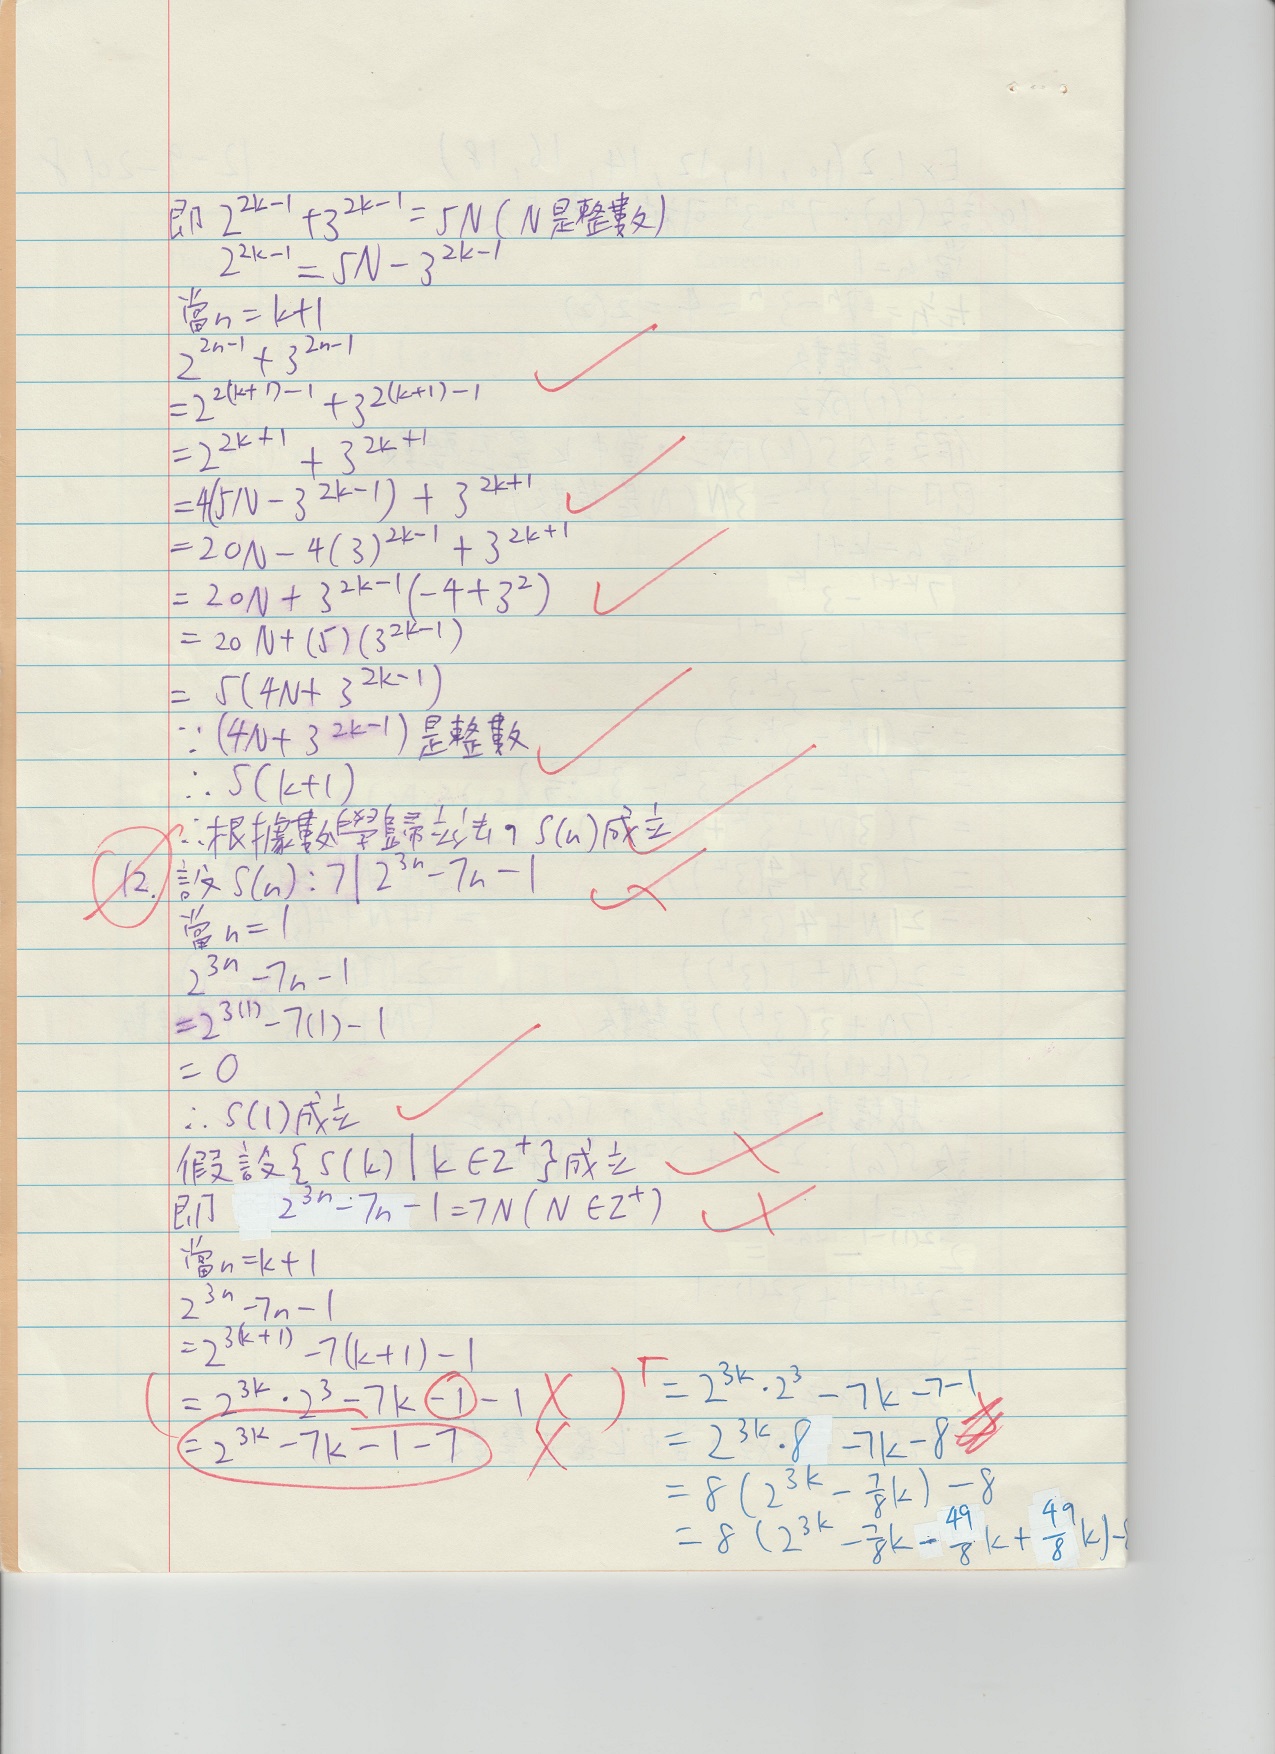 即 2^{2k-1} + 3^{2k-1} = 5N ( N是整數)
2^{2k-1} = 5N - 3^{2k-1}
當n = k+1
2^{2n-1} + 3^{2n-1}
= 2^{2(k+1)-1} + 3^{2(k+1)-1}
= 2^{2k+1} + 3^{2k+1}
= 4(5N - 3^{2k-1}) + 3^{2k+1}
= 20N - 4(3)^{2k-1} + 3^{2k+1}
= 20N + 3^{2k-1}(-4+3^2)
= 20N + (5)(3^{2k-1})
= 5(4N + 3^{2k-1})
∵ (4N + 3^{2k-1}) 是整數
∴ S(k+1)
∴根據數學歸立法，S(n)成立
12. 設 S(n) : 7 | 2^{3n} - 7n - 1
當n = 1
2^{3n} - 7n - 1
= 2^{3(1)} - 7(1) - 1
= 0
∴ S(1)成立
假設{S(k) | k ∈ Z^+}成立
即 2^{3n} - 7n - 1 = 7N ( N ∈ Z^+)
當n = k+1
2^{3n} - 7n - 1
= 2^{3(k+1)} - 7(k+1) - 1
( = 2^{3k} · 2^3 - 7k - 1 - 1 )
= 2^{3k} - 7k - 1 - 7
= 2^{3k} · 2^3 - 7k - 7 - 1
= 2^{3k} · 8 - 7k - 8
= 8 ( 2^{3k} - 7/8 k ) - 8
= 8 ( 2^{3k} - 7/8 k - 49/8 k + 49/8 k) - 8